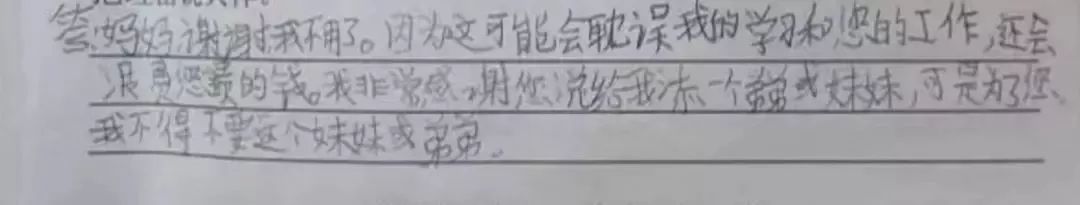 答:妈妈谢谢我不用了。因为这可能会耽误我的学习和您的工作,还会
浪费您赚的钱。我非常感谢您说给我添一个弟弟或妹妹,可是为了您
我不得不要这个妹妹或弟弟。